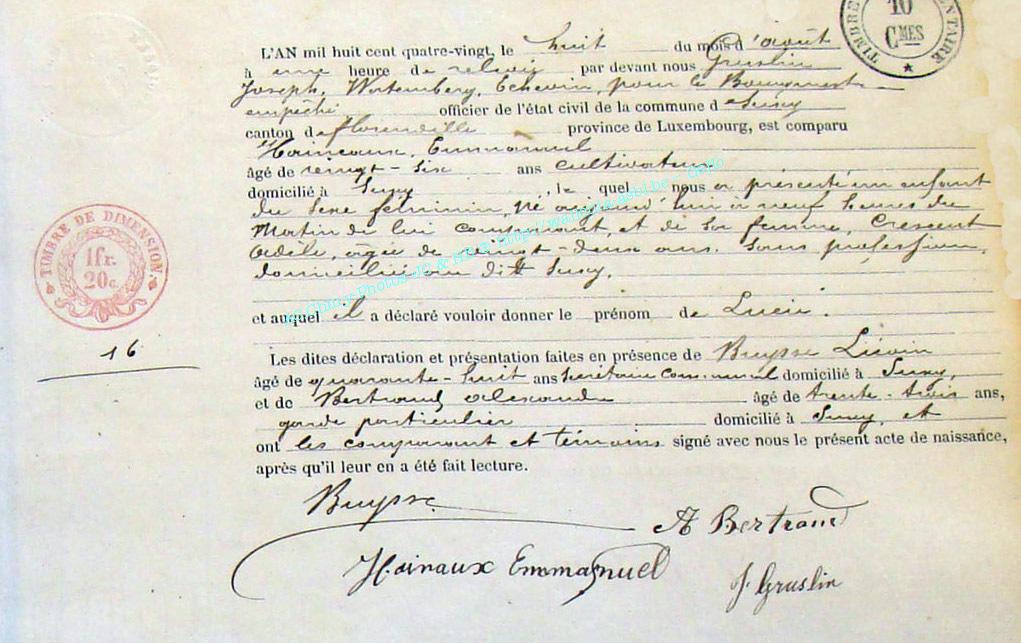 TIMBRE
10
CMES
L'AN mil huit cent quatre-vingt, le huit du mois d'août
à une heure de relevée par devant nous Gruslin
Joseph, Echevin, pour le Bourgmestre
empêché officier de l'état civil de la commune de Sugy
canton de Florenville province de Luxembourg, est comparu
Hainaux, Emmanuel
âgé de vingt-six ans cultivateur
domicilié à Sugy, le quel nous a présenté un enfant
du sexe féminin, né aujourd'hui à neuf heures du
matin de lui comparant, et de son femme, Crescent
Adèle, âgée de vingt-deux ans. Sans profession,
domiciliée au dit Sugy.
et auquel il a déclaré vouloir donner le prénom de Lucie.
TIMBRE DE DIMENSION.
1fr.
20c.
16
Les dites déclaration et présentation faites en présence de Buysse Liévin
âgé de quarante-huit ans Secrétaire communal domicilié à Sugy,
et de Bertrand Alexandre âgé de trente-trois ans,
garde particulier domicilié à Sugy, et
ont les comparant et témoins signé avec nous le présent acte de naissance,
après qu'il leur en a été fait lecture.
Buysse
A Bertrand
Hainaux Emmanuel
J. Gruslin